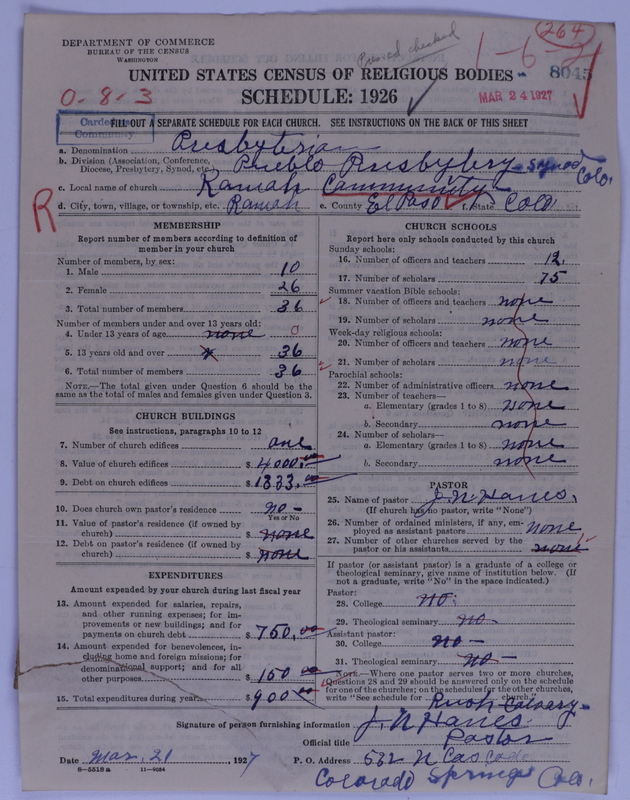 DEPARTMENT OF COMMERCE
BUREAU OF THE CENSUS
WASHINGTON
(264)
1-6-
8045
MAR 24 1927
UNITED STATES CENSUS OF RELIGIOUS BODIES
SCHEDULE: 1926
0-8-3
FILL OUT A SEPARATE SCHEDULE FOR EACH CHURCH. SEE INSTRUCTIONS ON THE BACK OF THIS SHEET
a. Denomination Presbyterian
b. Division (Association, Conference, Diocese, Presbytery, Synod, etc.) Pueblo Presbytery - Synod Colo.
c. Local name of church Ramah Community
d. City, town, village, or township, etc. Ramah e. County El Paso f. State Colo
R
MEMBERSHIP
Report number of members according to definition of
member in your church
Number of members, by sex:
1. Male 10
2. Female 26
3. Total number of members 36
Number of members under and over 13 years old:
4. Under 13 years of age none 0
5. 13 years old and over 36
6. Total number of members 36
NOTE.—The total given under Question 6 should be
same as the total of males and females given under Question 3.
CHURCH BUILDINGS
See instructions, paragraphs 10 to 12
7. Number of church edifices one
8. Value of church edifices $ 4000.00
9. Debt on church edifices $ 1333.00
10. Does church own pastor's residence no -
Yes or No
11. Value of pastor's residence (if owned by
church) $ none
12. Debt on pastor's residence (if owned by
church) $ none
EXPENDITURES
Amount expended by your church during last fiscal year
13. Amount expended for salaries, repairs,
and other running expenses; for im-
provements or new buildings; and for
payments on church debt $ 750.00
14. Amount expended for benevolences, in-
cluding home and foreign missions; for
denominational support; and for all
other purposes $ 150 00
15. Total expenditures during year $ 900 00
CHURCH SCHOOLS
Report here only schools conducted by this church
Sunday schools:
16. Number of officers and teachers 12.
17. Number of scholars 75
Summer vacation Bible schools:
18. Number of officers and teachers none
19. Number of scholars none
Week-day religious schools:
20. Number of officers and teachers none
21. Number of scholars none
Parochial schools:
22. Number of administrative officers none
23. Number of teachers—
a. Elementary (grades 1 to 8) none
b. Secondary none
24. Number of scholars—
a. Elementary (grades 1 to 8) none
b. Secondary none
PASTOR
25. Name of pastor J. N. Hanes.
(If church has no pastor, write "None")
26. Number of ordained ministers, if any, em-
ployed as assistant pastors none
27. Number of other churches served by the
pastor or his assistants none
If pastor (or assistant pastor) is a graduate of a college or
theological seminary, give name of institution below. (If
not a graduate, write "No" in the space indicated.)
Pastor:
28. College no.
29. Theological seminary no -
Assistant pastor:
30. College no -
31. Theological seminary no -
NOTE.—Where one pastor serves two or more churches,
Questions 28 and 29 should be answered only on the schedule
for one of the churches; on the schedules for the other churches,
write "See schedule for Rush Calvary church."
Signature of person furnishing information J. N. Hanes
Official title Pastor
Date Mar. 21, 1927 P. O. Address 532 N Cascade
8-5518 a 11-9084
Colorado Springs Colo.